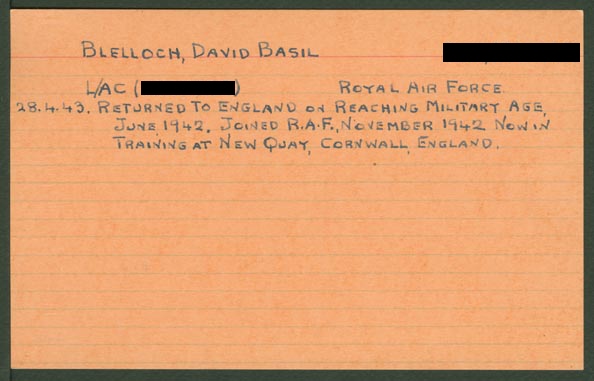 BLELLOCH, DAVID BASIL
L/AC ( ) ROYAL AIR FORCE.
28.4.43. RETURNED TO ENGLAND ON REACHING MILITARY AGE,
JUNE 1942. JOINED R.A.F., NOVEMBER 1942 NOW IN
TRAINING AT NEW QUAY, CORNWALL, ENGLAND.